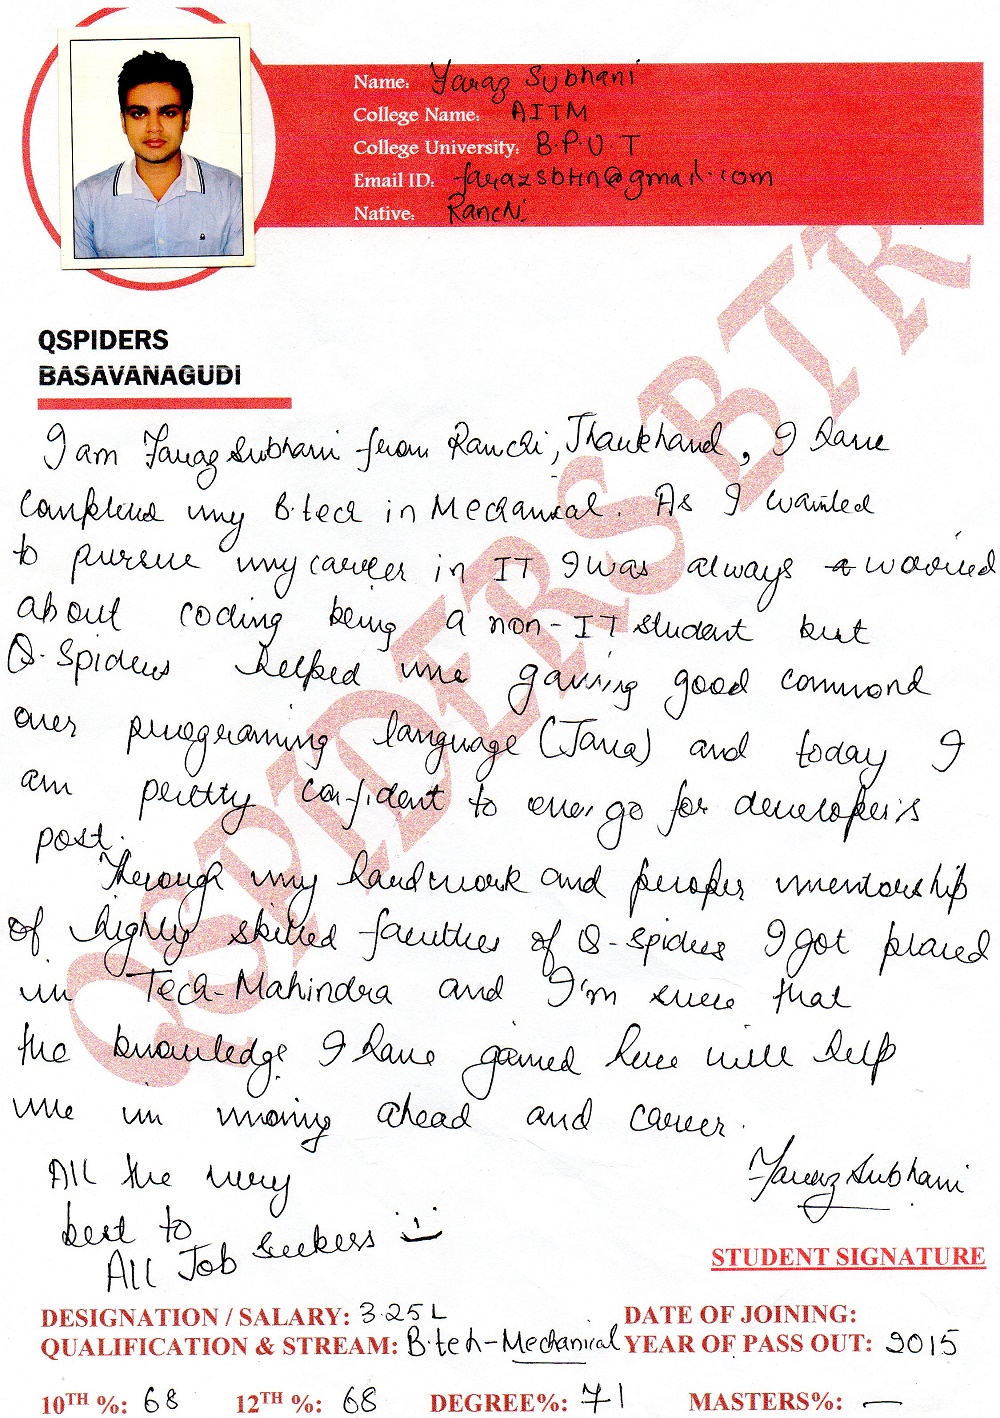 Name: Faraz Subhani
College Name: AITM
College University: B.P.U.T
Email ID: farazsbhn@gmail.com
Native: Ranchi
QSPIDERS
BASAVANAGUDI
QSPIDERS BTR
I am Faraz Subhani from Ranchi, Jharkhand, I have
completed my B.tech in Mechanical. As I wanted
to pursue my career in IT I was always worried
about coding being a non-IT student but
Q-Spiders helped me gaining good command
over programing language (Java) and today I
am pretty confident to even go for developer's
post.
Through my hardwork and proper mentorship
of highly skilled faculties of Q-Spiders I got placed
in Tech-Mahindra and I'm sure that
the knowledge I have gained here will help
me in moving ahead and career.
All the very
best to
All Job Seekers
Faraz Subhani
STUDENT SIGNATURE
DESIGNATION / SALARY: 3.25 L DATE OF JOINING:
QUALIFICATION & STREAM: B.tech-Mechanical YEAR OF PASS OUT: 2015
10TH %: 68 12TH %: 68 DEGREE%: 71 MASTERS%: —